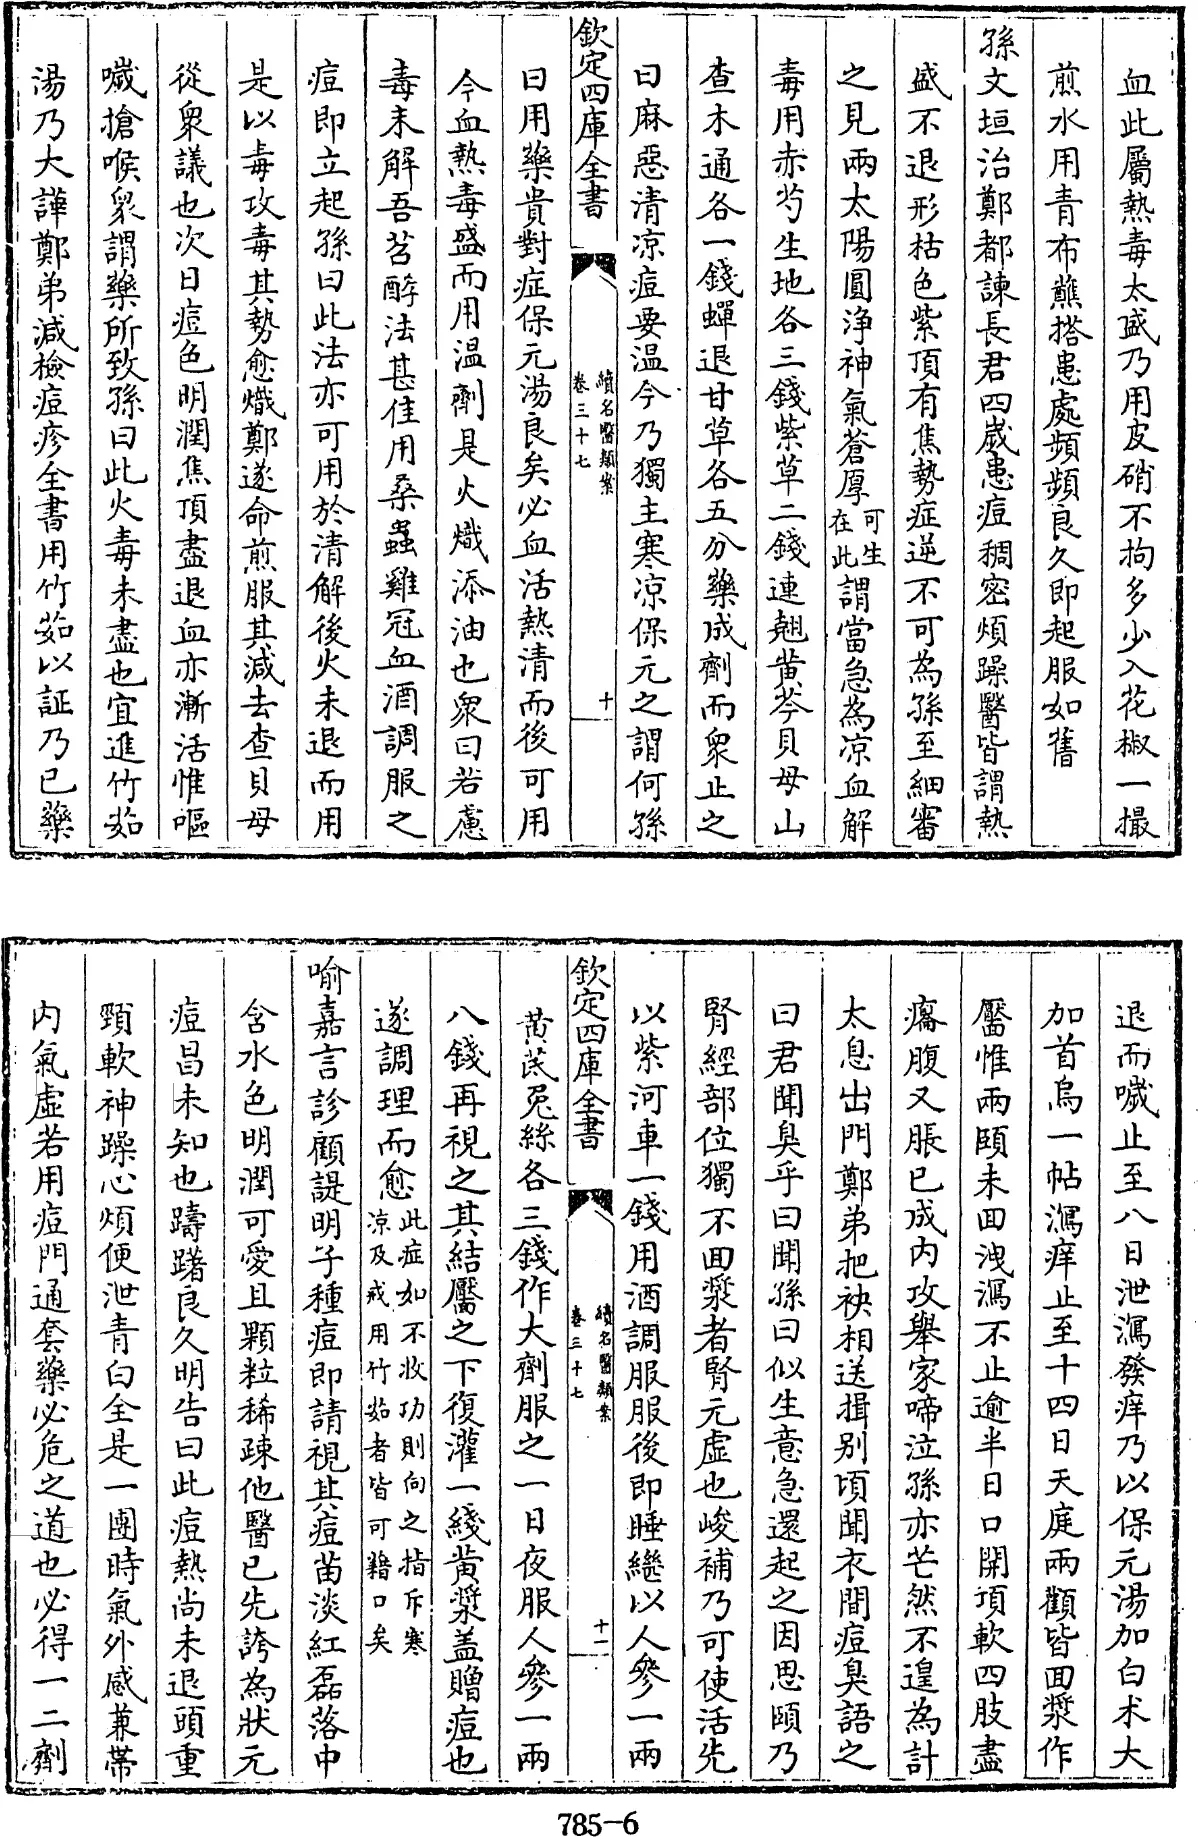 血此屬熱毒太盛乃用皮硝不拘多少入花椒一撮
煎水用青布蘸搭患處頻頻良久即起服如舊
孫文垣治鄭都諫長君四嵗患痘稠密煩躁醫皆謂熱
盛不退形枯色紫頂有焦勢症逆不可為孫至細審
之見兩太陽圓淨神氣蒼厚可生在此謂當急為凉血解
毒用赤芍生地各三錢紫草二錢連翹黄芩貝母山
查木通各一錢蟬退甘草各五分藥成劑而衆止之
曰麻惡清凉痘要温今乃獨主寒凉保元之謂何孫
欽定四庫全書
續名醫類案
卷三十七
十
曰用藥貴對症保元湯良矣必血活熱清而後可用
今血熱毒盛而用温劑是火熾添油也衆曰若慮
毒未解吾苕酵法甚佳用桑蟲雞冠血酒調服之
痘即立起孫曰此法亦可用於清解後火未退而用
是以毒攻毒其勢愈熾鄭遂命煎服其減去查貝母
從衆議也次日痘色明潤焦頂盡退血亦漸活惟嘔
噦搶喉衆謂藥所致孫曰此火毒未盡也宜進竹茹
湯乃大譁鄭弟減檢痘疹全書用竹茹以証乃已藥
退而噦止至八日泄瀉發痒乃以保元湯加白术大
加首烏一帖瀉痒止至十四日天庭兩顴皆回漿作
靨惟兩頤未回洩瀉不止逾半日口開項軟四肢盡
癟腹又脹已成内攻舉家啼泣孫亦芒然不遑為計
太息出門鄭弟把袂相送揖别頃聞衣間痘臭語之
曰君聞臭乎曰聞孫曰似生意急還起之因思頤乃
腎經部位獨不回漿者腎元虚也峻補乃可使活先
以紫河車一錢用酒調服服後即睡繼以人參一兩
欽定四庫全書
續名醫類案
卷三十七
十一
黄芪兎絲各三錢作大劑服之一日夜服人參一兩
八錢再視之其結靨之下復灌一綫黄漿盖贈痘也
遂調理而愈此症如不收功則向之指斥寒凉及戒用竹茹者皆可藉口矣
喻嘉言診顧諟明子種痘即請視其痘苗淡紅磊落中
含水色明潤可愛且顆粒稀疎他醫已先誇為狀元
痘昌未知也躊躇良久明告曰此痘熱尚未退頭重
頸軟神躁心煩便泄青白全是一團時氣外感兼帶
内氣虚若用痘門通套藥必危之道也必得一二劑
785-6